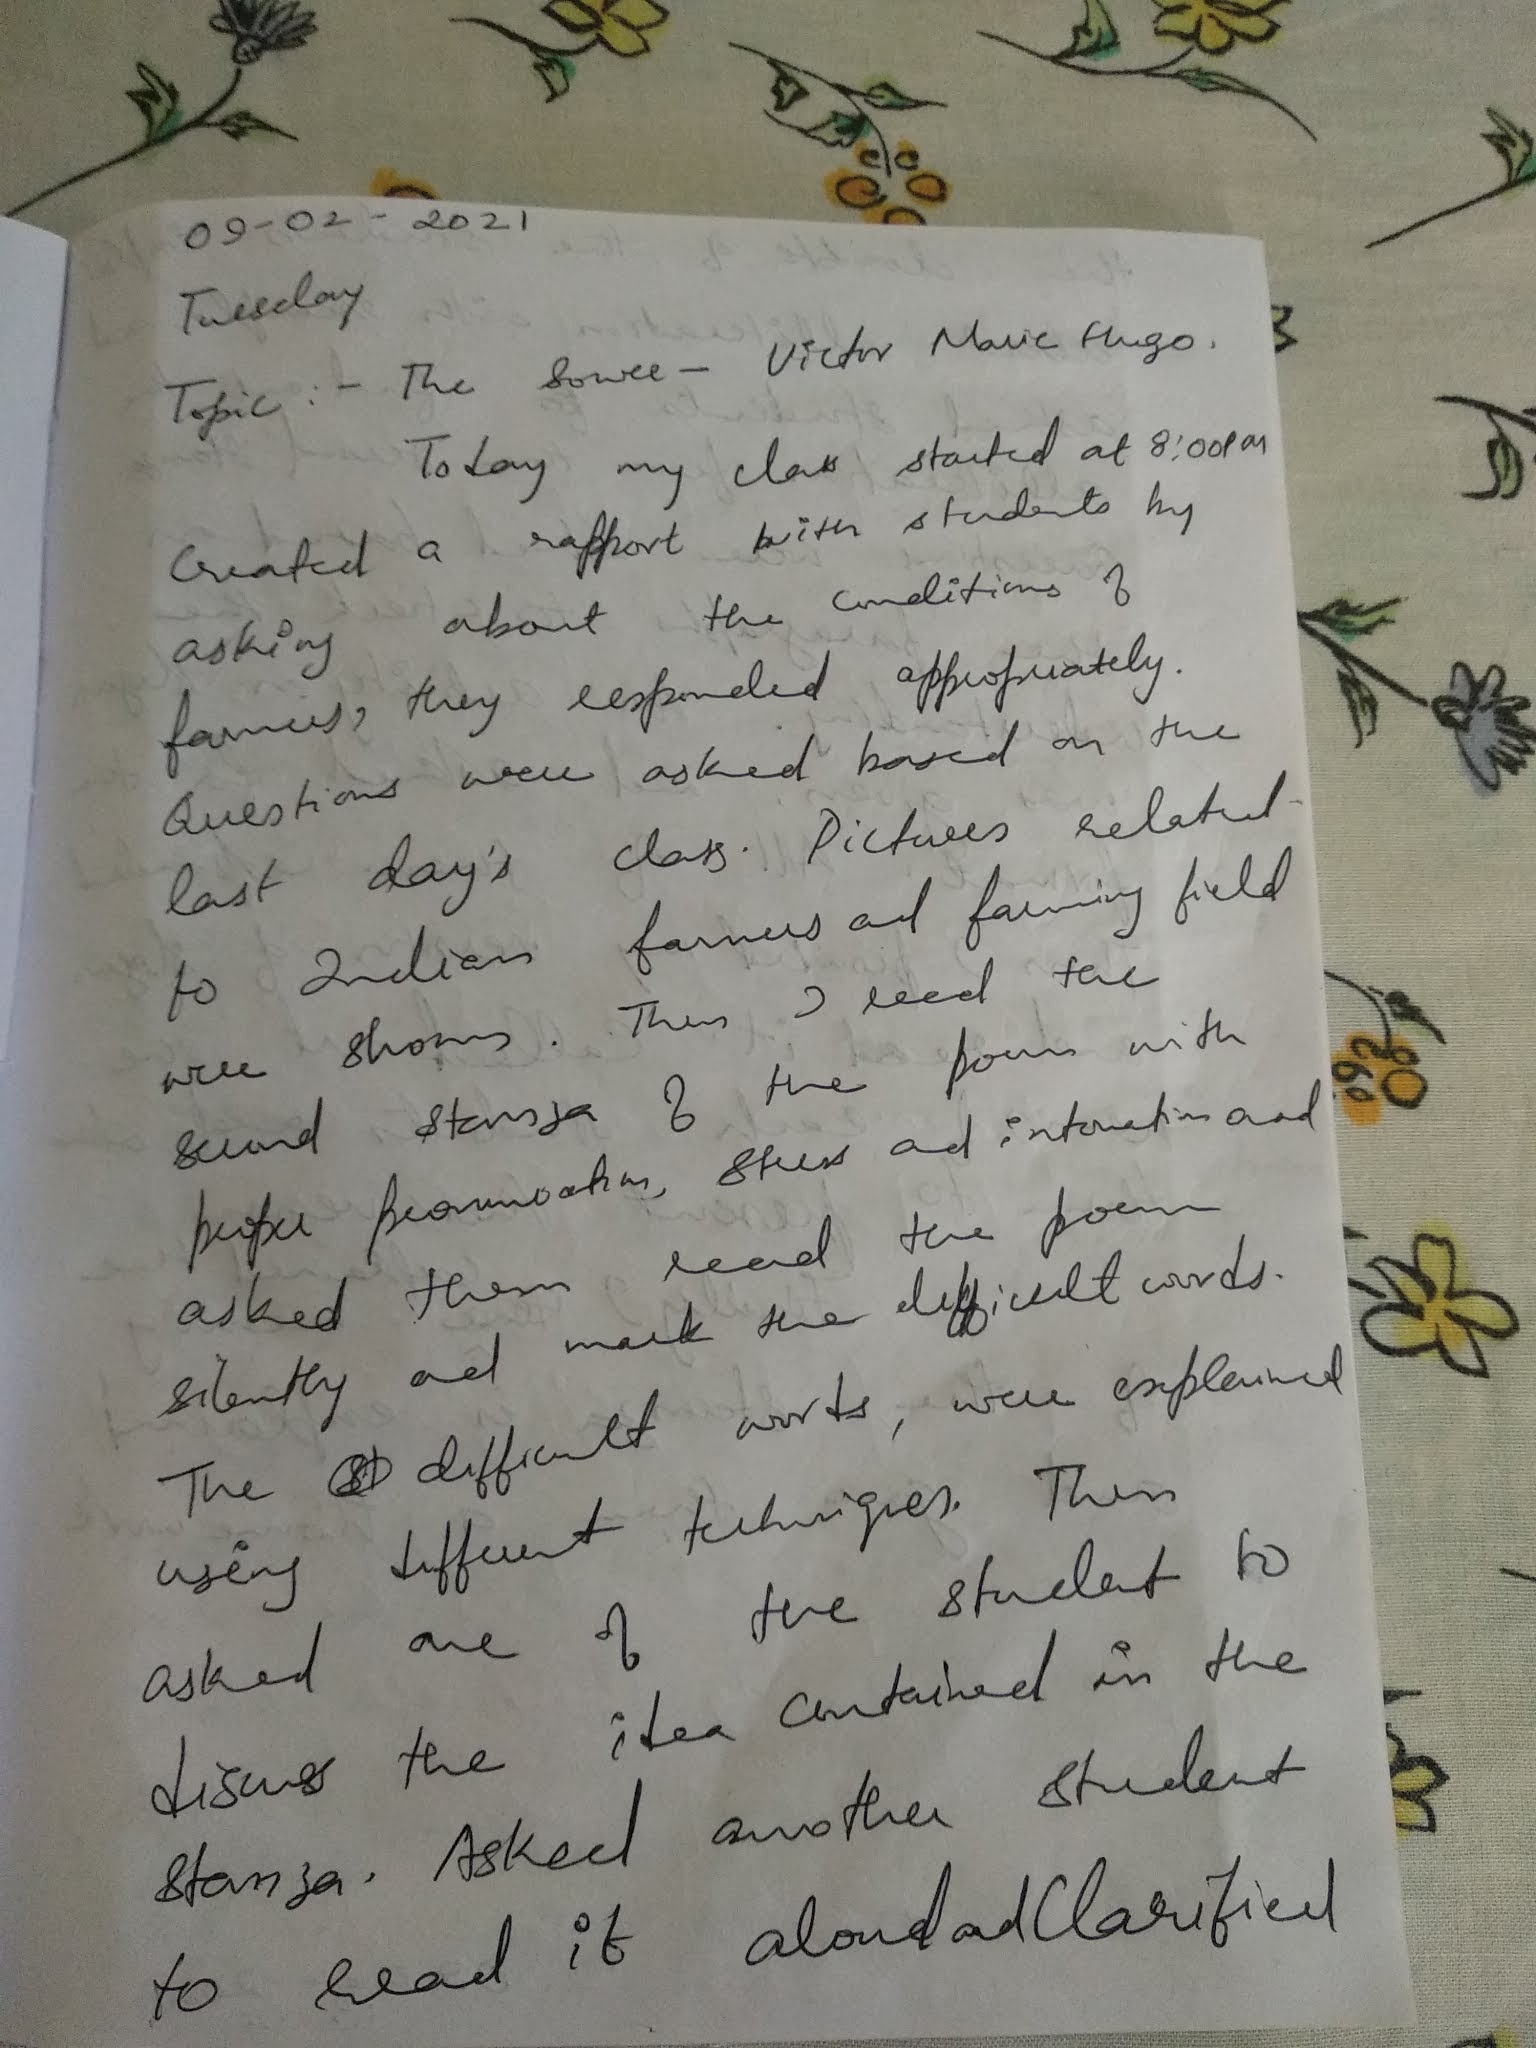 09-02-2021
Tuesday
Topic :- The Sower - Victor Marie Hugo.
Today my class started at 8:00 PM
Created a rapport with students by
asking about the conditions of
farmers, they responded appropriately.
Questions were asked based on the
last day's class. Pictures related
to Indian farmers and farming field
were shown. Then I read the
second stanza of the poem with
proper pronunciation, stress and intonation and
asked them read the poem
silently and mark the difficult words.
The difficult words, were explained
using different techniques. Then
asked one of the student to
discuss the idea contained in the
stanza. Asked another student
to read it aloud and Clarified